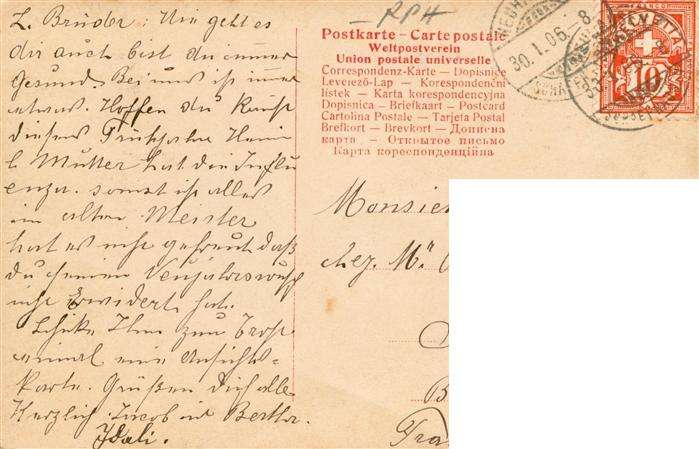 L. Brüder: Wie geht es
dir auch bist du immer
gesund. Bei uns ist immer
etwas. Hoffen du kannst
diesen Frühjahr Heim
l. Mutter hat die Influ
enza. sonst ist alles
im alten Meister
hat es nicht gefreut daß
du seinen Neujahrswusch
nicht erwidert hat.
Schike Ihm zum Trost
einmal eine Ansichts-
karte. Grüßen dich alle
Herzlich Jacob und Bertha.
Idali.
RPH
Postkarte - Carte postale
Weltpostverein
Union postale universelle
Correspondenz-Karte — Dopisnice
Levelező-Lap — Korespondenční
lístek — Karta korespondencyjna
Dopisnica — Briefkaart — Postcard
Cartolina Postale — Tarjeta Postal
Brefkort — Brevkort — Дописна
карта — Открытое письмо
Карта кореспонденційна
30.1.06.-8
HELVETIA
10
Monsie
chez Mr
B
Fra